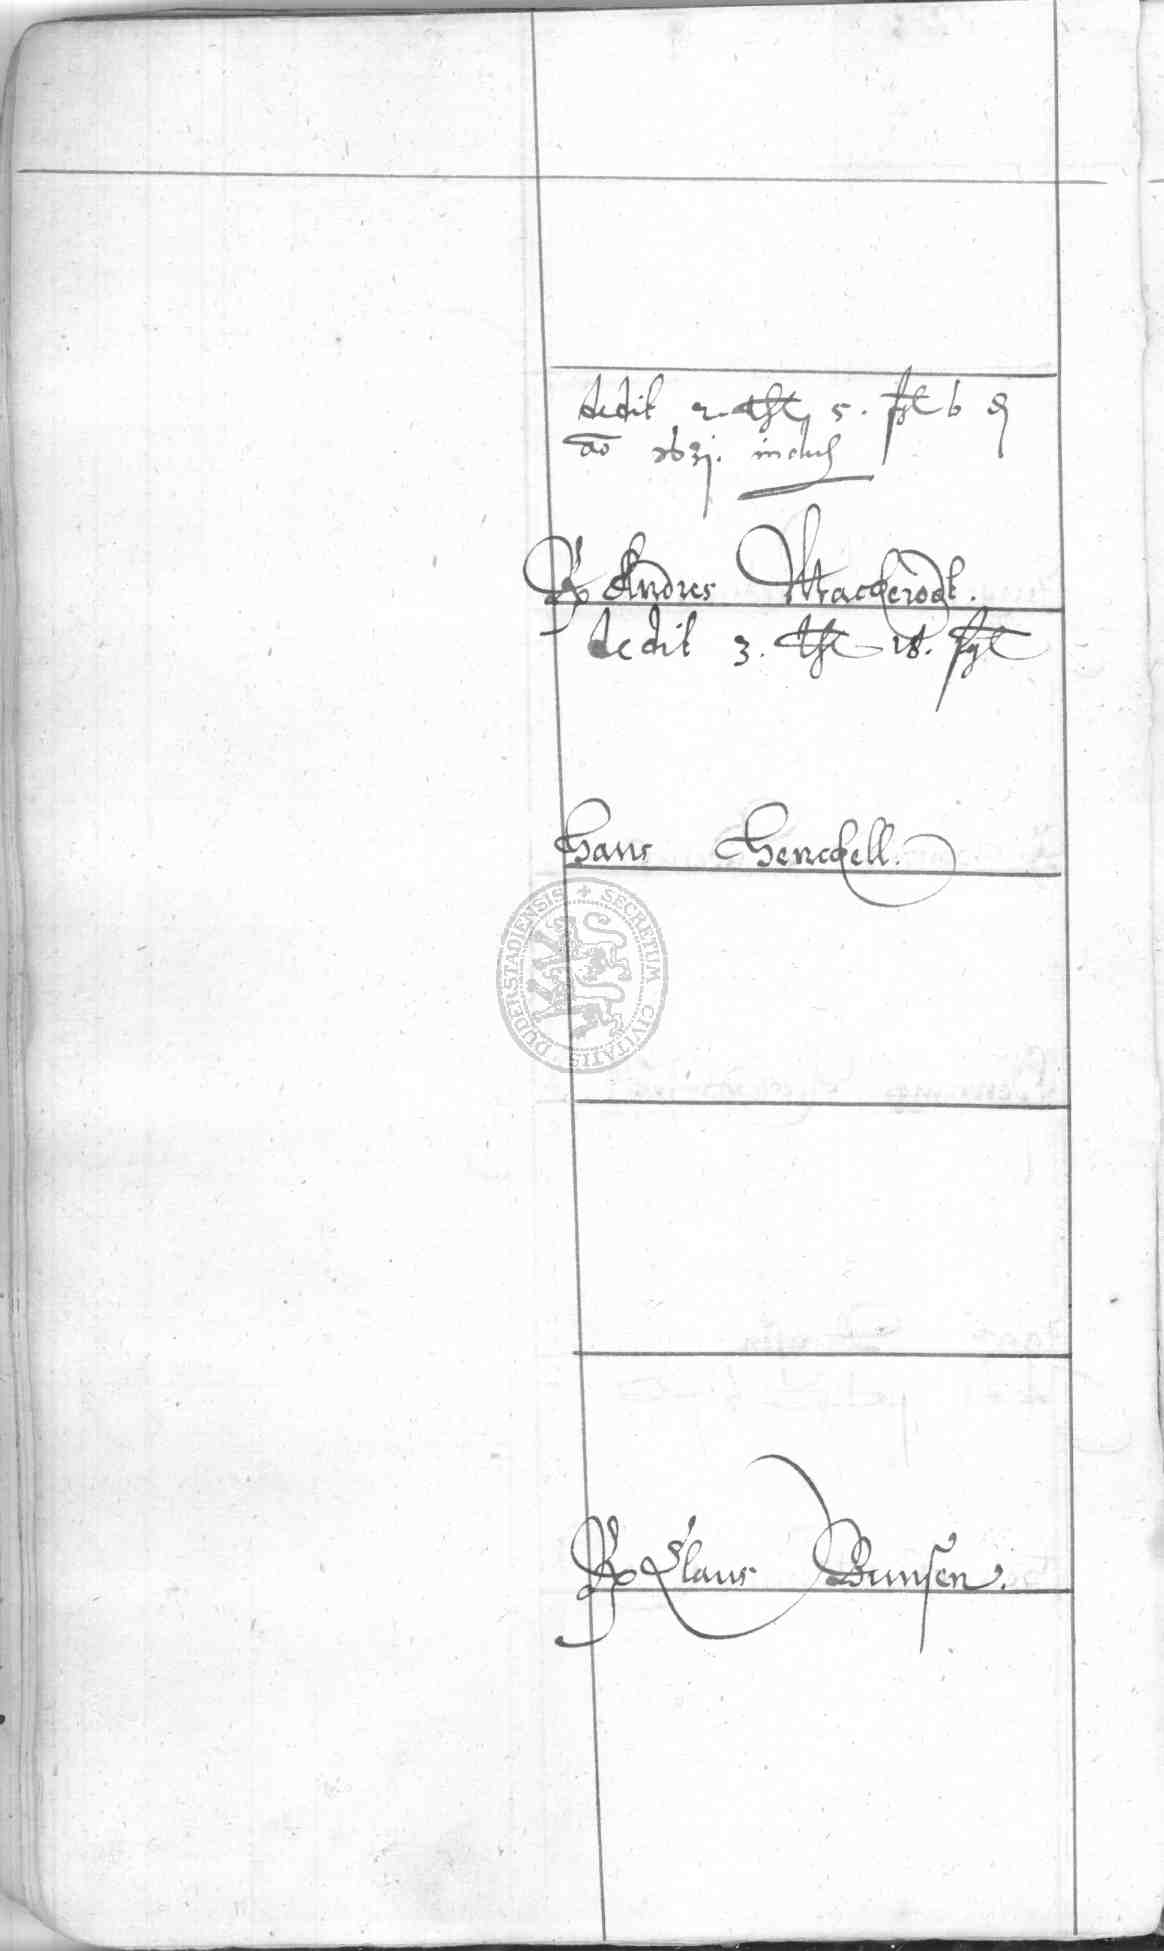 dedit 2. thl 5. ſgl 6 ₰
ao 1631. inclus
Andres Mackerodt.
dedit 3. thl 18. ſgl
Hans Henckell.
SECRETUM CIVITATIS DUDERSTADIENSIS
Claus Bunſen.